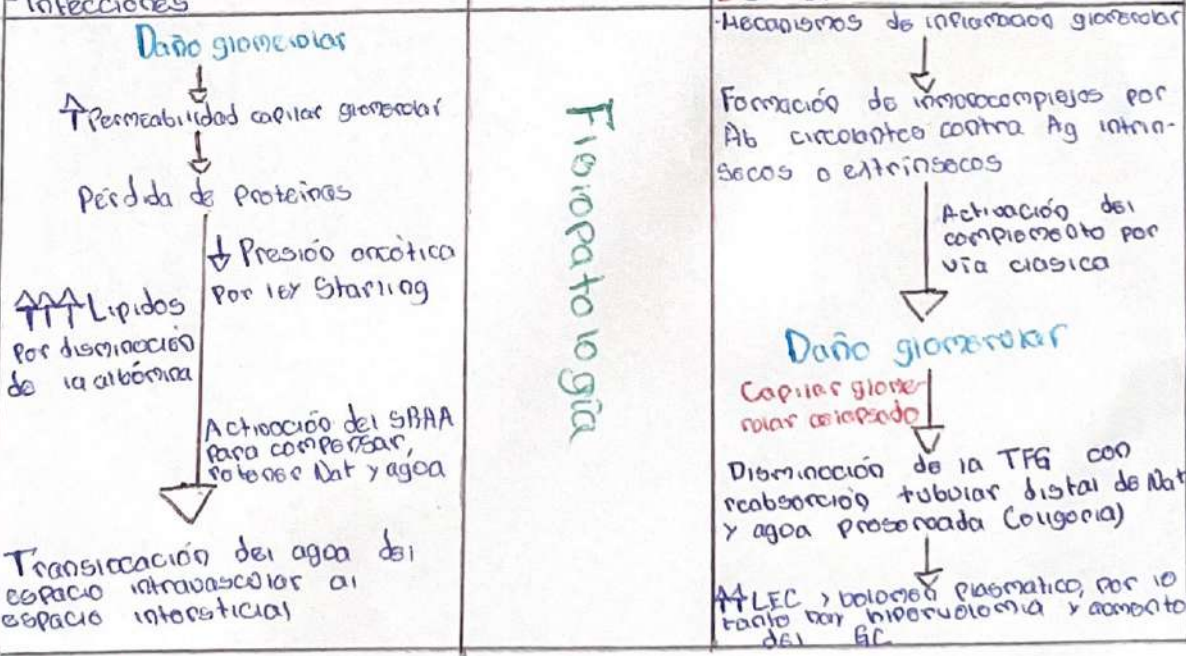 Infecciones
Daño glomerular
↑ Permeabilidad capilar glomerular
Pérdida de proteinas
↓ Presión oncótica
Por ley Starling
↑↑↑ Lipidos
Por disminución
de la albúmina
Activación del SRAA
para compensar,
retener Na+ y agua
Translocación del agua del
espacio intravascular al
espacio intersticial
Fisiopatología
-Mecanismos de inflamación glomerular
Formación de inmunocomplejos por
Ab circulantes contra Ag intrin-
secos o extrinsecos
Activación del
complemento por
vía clasica
Daño glomerular
Capilar glome-
rular colapsado
Disminución de la TFG con
reabsorción tubular distal de Na+
y agua preservada (oliguria)
↑↑ LEC y volumen plasmatico, por lo
tanto hay hipervolemia y aumento
del GC